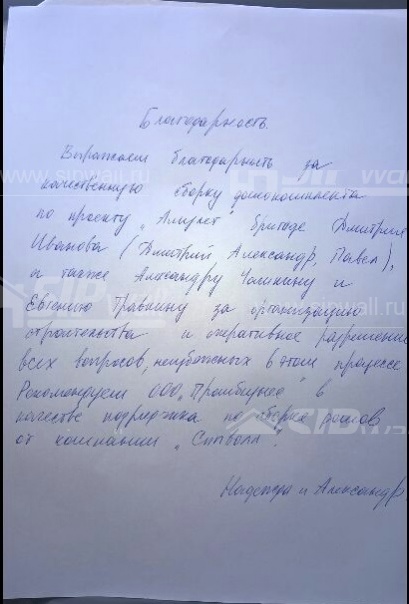 Благодарность.
Выражаем благодарность за
качественную сборку домокомплекта
по проекту „Амулет" бригаде Дмитрия
Иванова (Дмитрий, Александр, Павел),
а также Александру Чашкину и
Евгению Травкину за организацию
строительства и оперативное разрешение
всех вопросов, неизбежных в этом процессе
Рекомендуем ООО „Промбизнес" в
качестве подрядчика по сборке домов
от компании „Сипволл".
Надежда и Александр
www.sipwall.ru